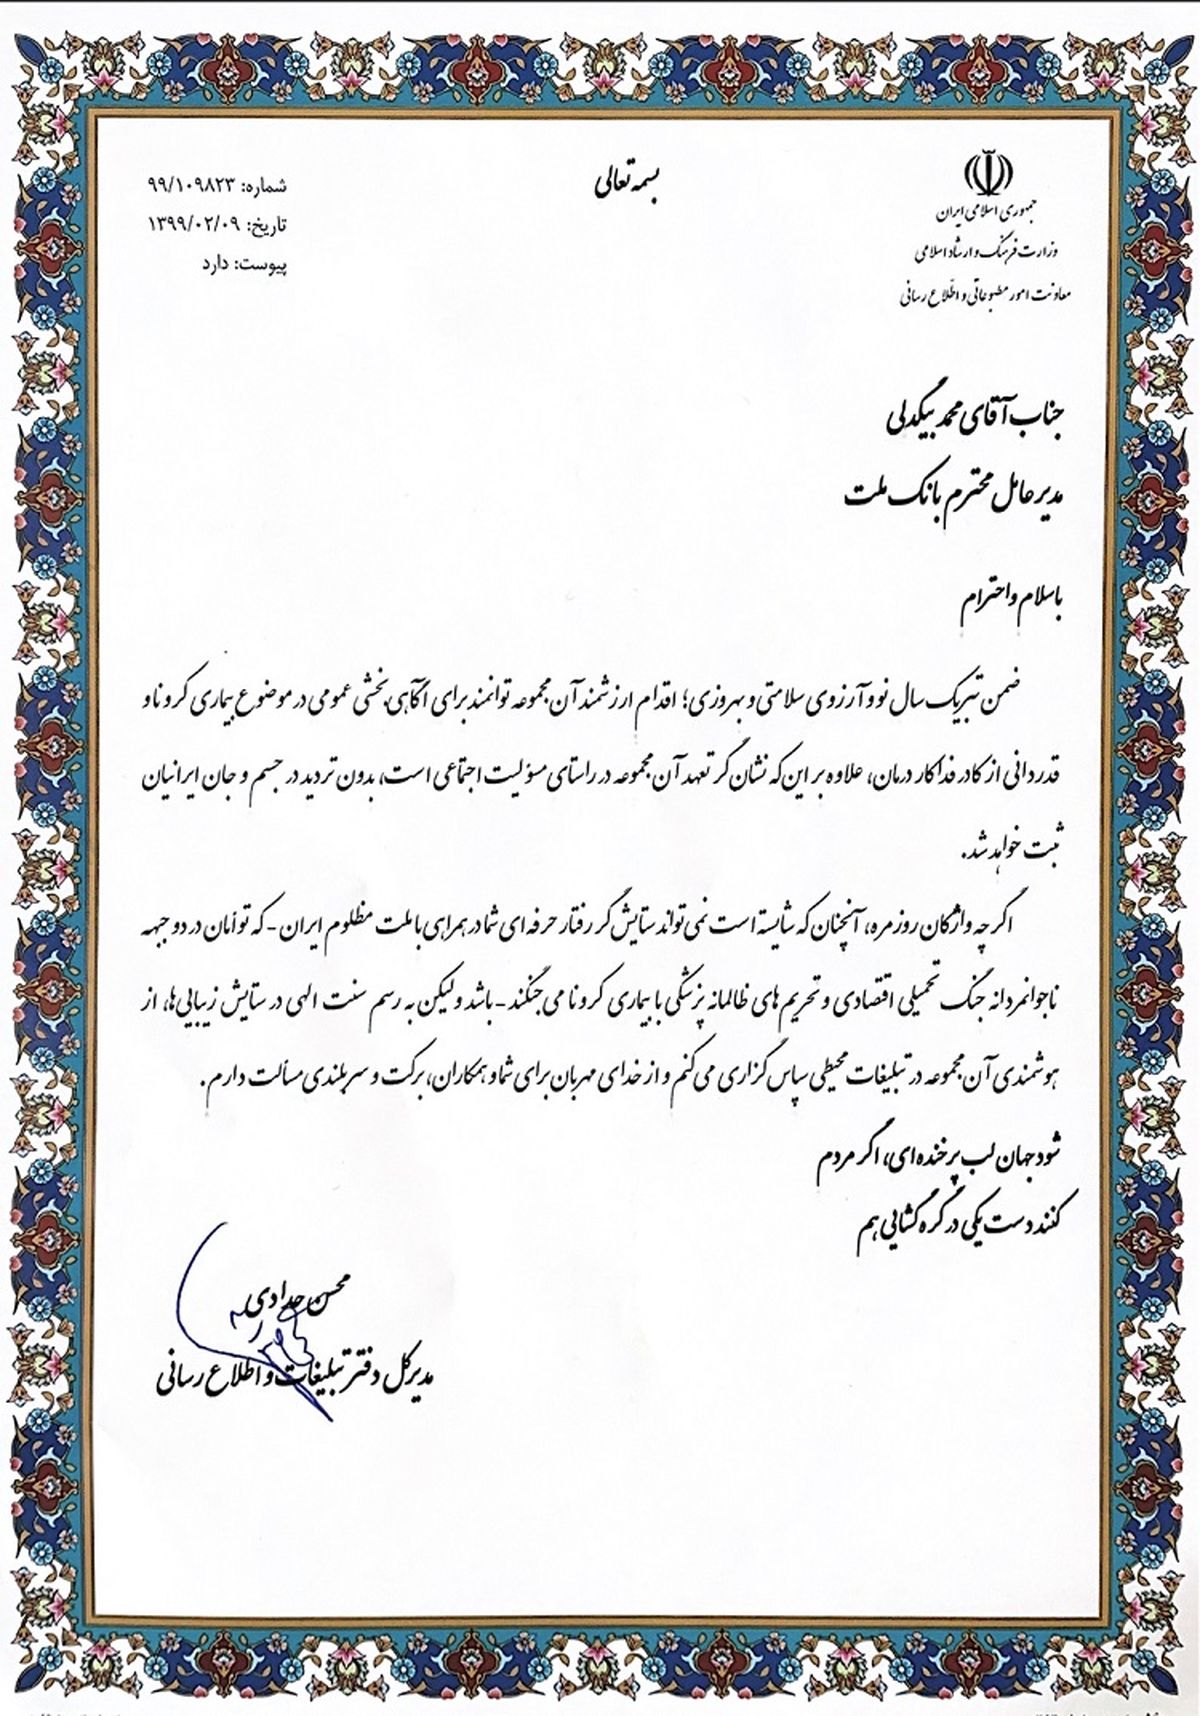 بسمه تعالی
جمهوری اسلامی ایران
وزارت فرهنگ و ارشاد اسلامی
معاونت امور مطبوعاتی و اطلاع رسانی
شماره: ۹۹/۱۰۹۸۲۳
تاریخ: ۱۳۹۹/۰۲/۰۹
پیوست: دارد
جناب آقای محمد بیگدلی
مدیر عامل محترم بانک ملت
با سلام و احترام
ضمن تبریک سال نو و آرزوی سلامتی و بهروزی؛ اقدام ارزشمند آن مجموعه توانمند برای آگاهی بخشی عمومی در موضوع بیماری کرونا و
قدردانی از کادر فداکار درمان، علاوه بر این که نشان گر تعهد آن مجموعه در راستای مسؤلیت اجتماعی است، بدون تردید در جسم و جان ایرانیان
ثبت خواهد شد.
اگر چه واژگان روزمره، آنچنان که شایسته است نمی تواند ستایش گر رفتار حرفه ای شما در همراهی با ملت مظلوم ایران - که توأمان در دو جبهه
ناجوانمردانه جنگ تحمیلی اقتصادی و تحریم های ظالمانه پزشکی با بیماری کرونا می جنگند - باشد ولیکن به رسم سنت الهی در ستایش زیبایی ها، از
هوشمندی آن مجموعه در تبلیغات محیطی سپاس گزاری می کنم و از خدای مهربان برای شما و همکاران، برکت و سربلندی مسألت دارم.
شود جهان لب پرخنده ای، اگر مردم
کنند دست یکی در گره گشایی هم
محسن حدادی
مدیرکل دفتر تبلیغات و اطلاع رسانی